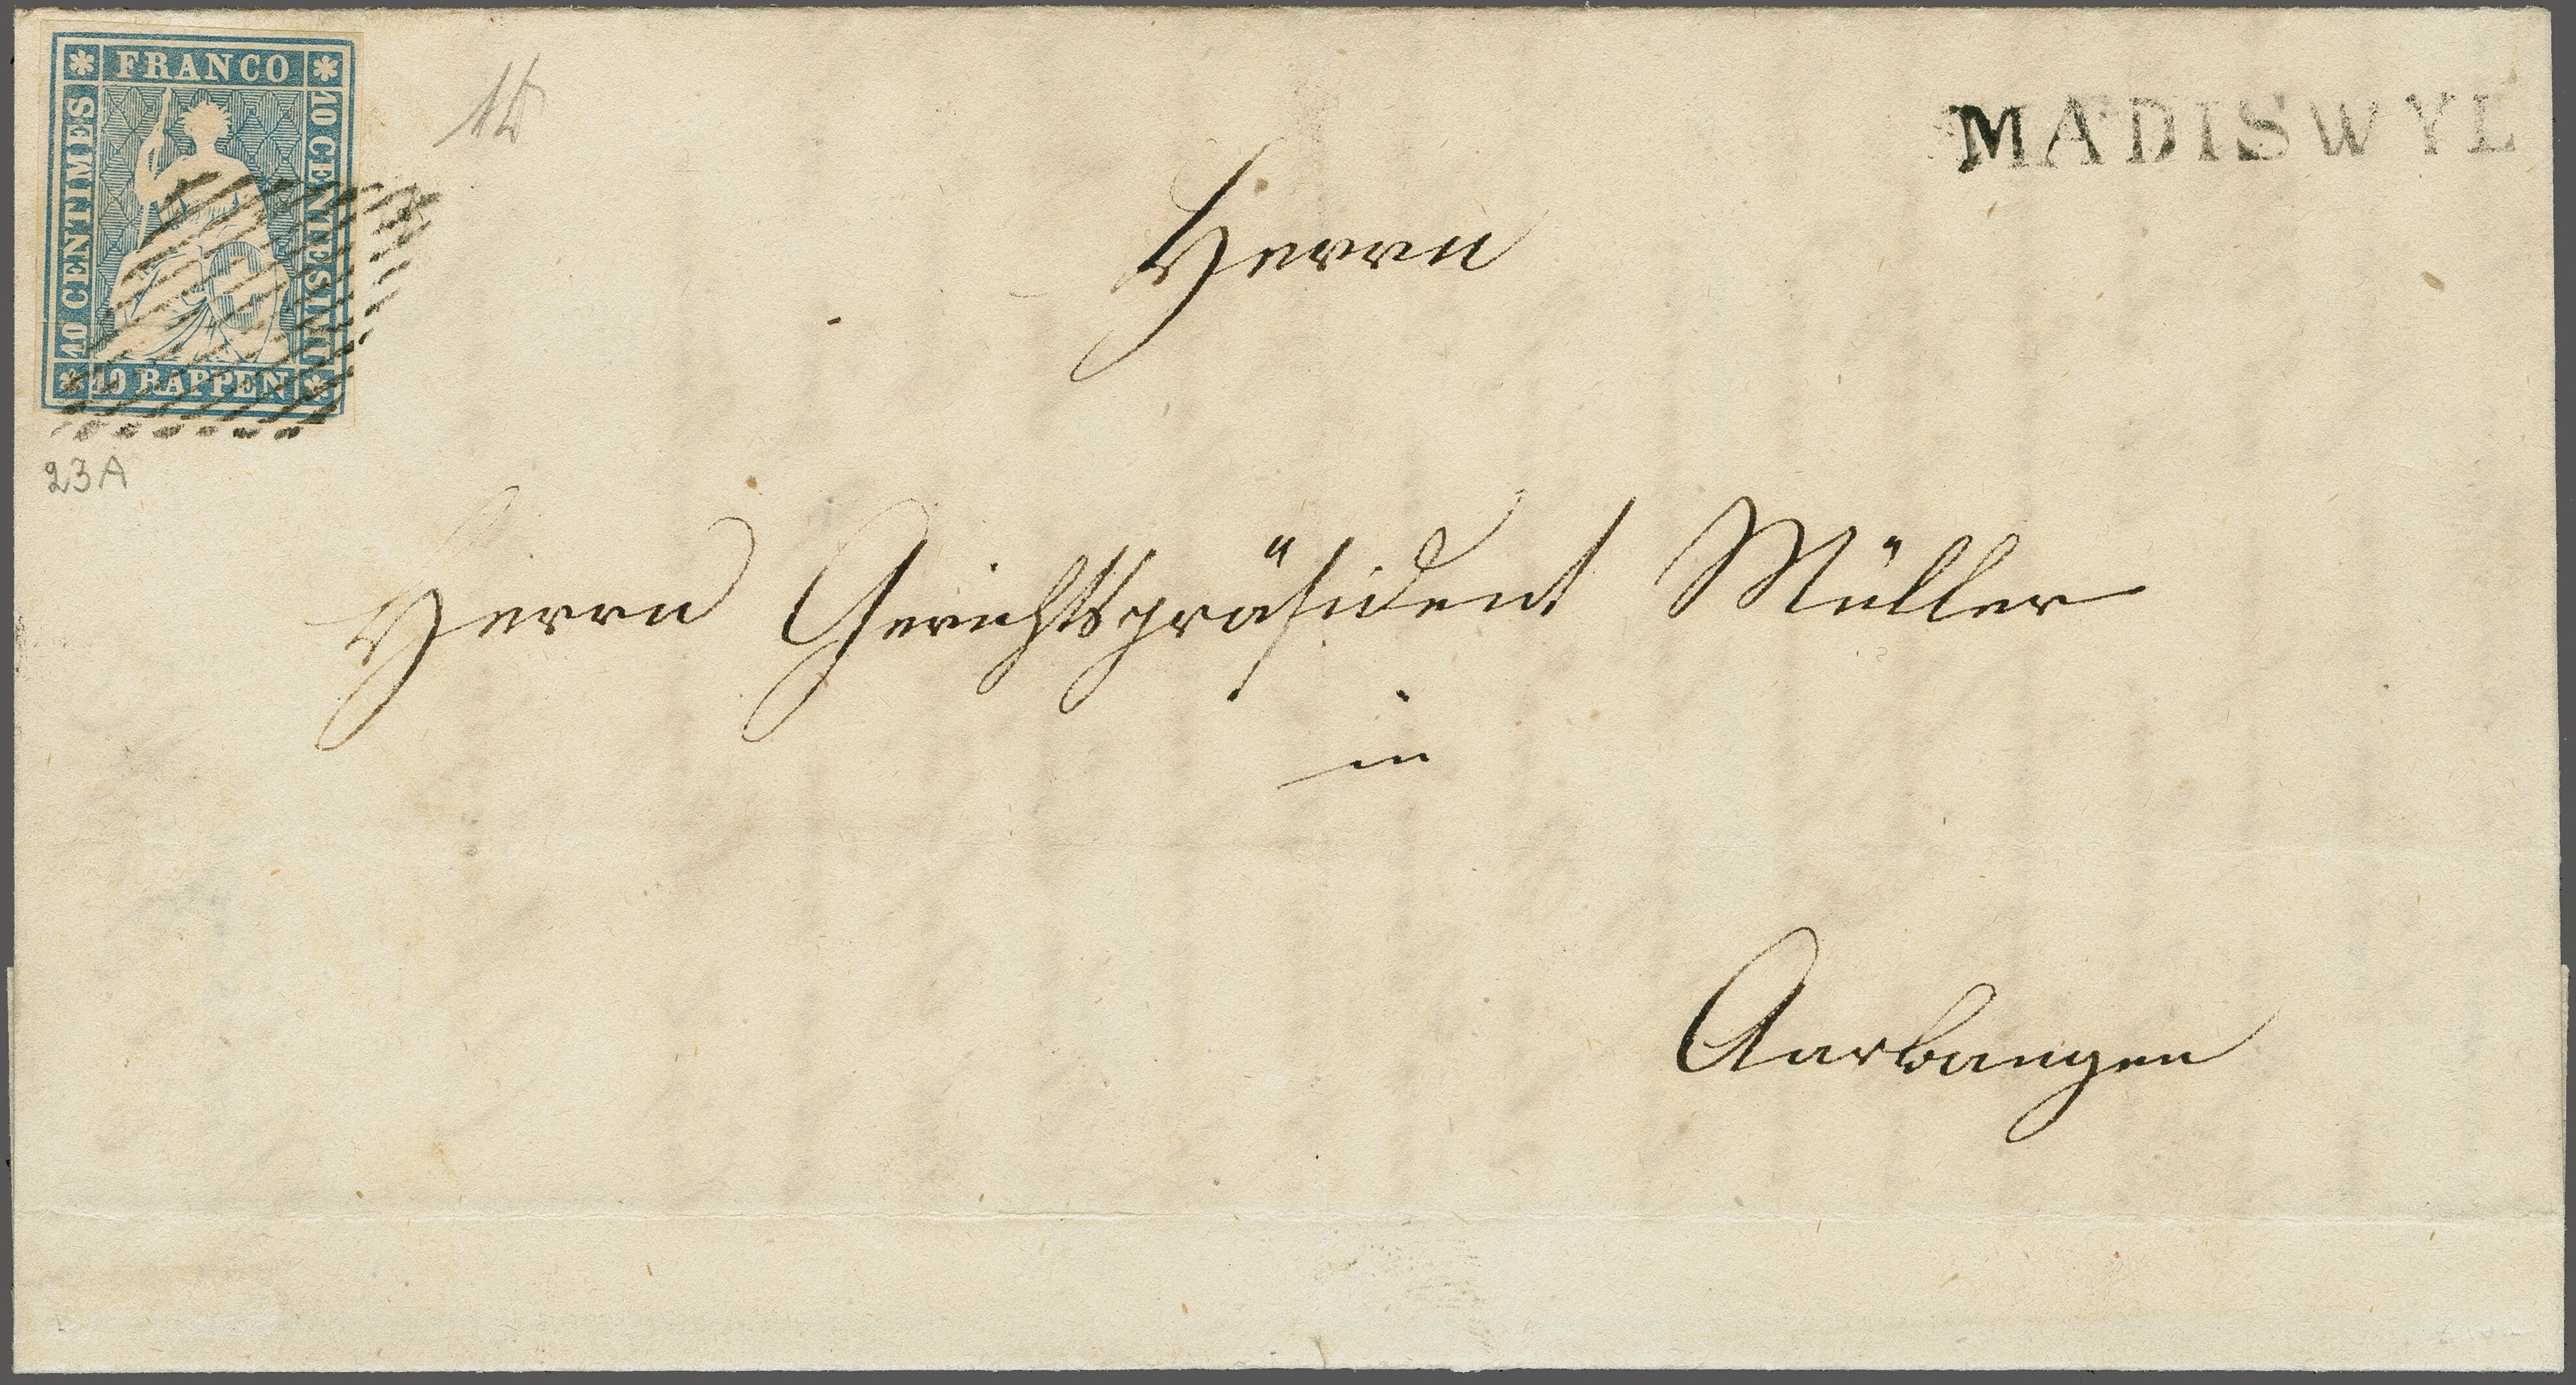 FRANCO
10 CENTIMES
10 CENTESIMI
10 RAPPEN
23A
MADISWYL
Herrn
Herrn Gerichtspräsident Müller
in
Aarwangen